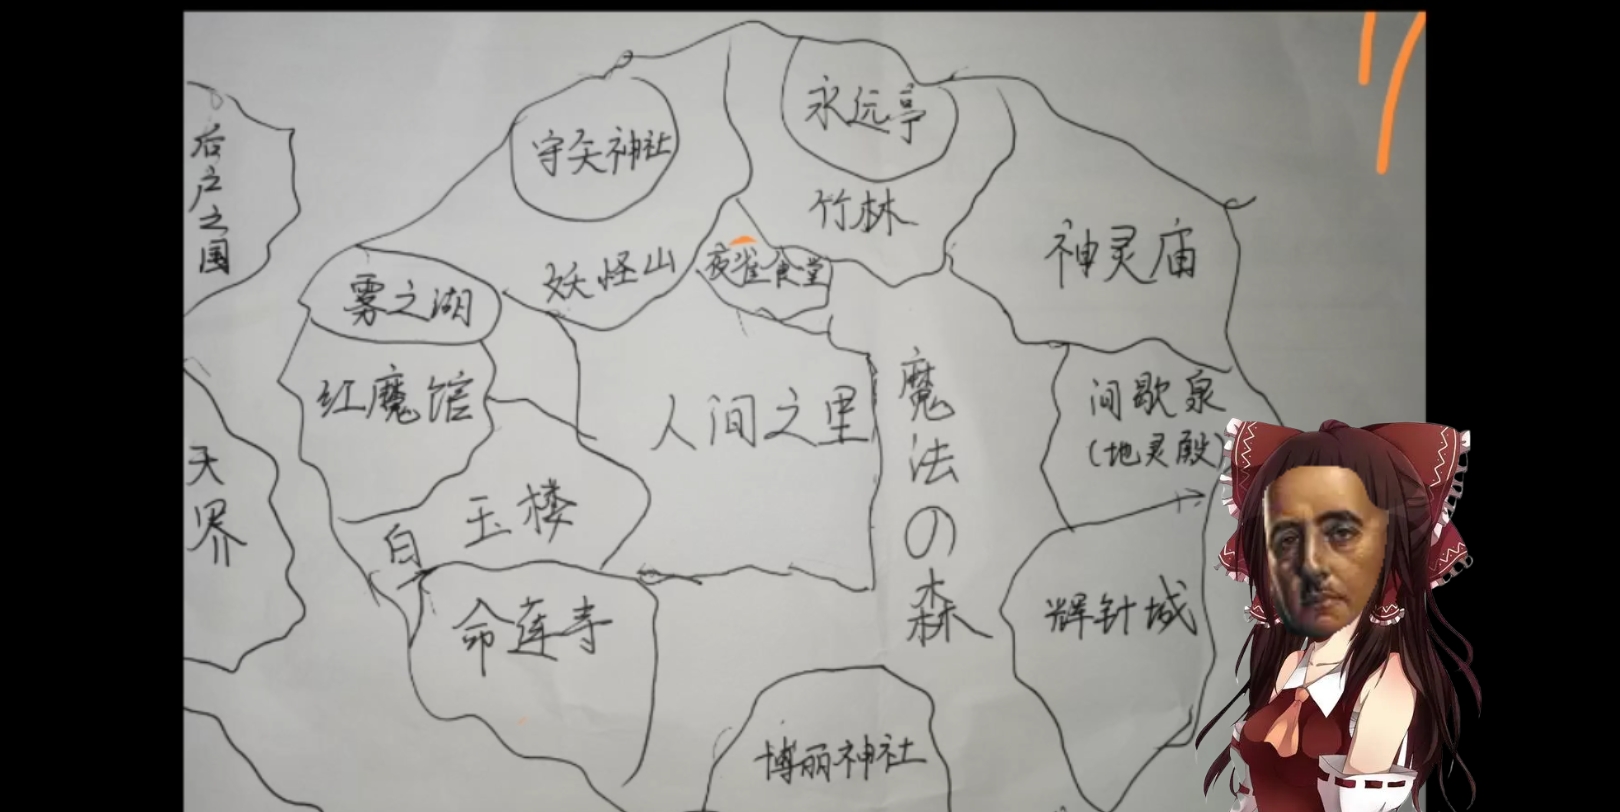 永远亭
守矢神社
竹林
后户之国
神灵庙
妖怪山
夜雀食堂
雾之湖
红魔馆
人间之里
间歇泉
(地灵殿)
魔法の森
天界
白玉楼
命莲寺
辉针城
博丽神社